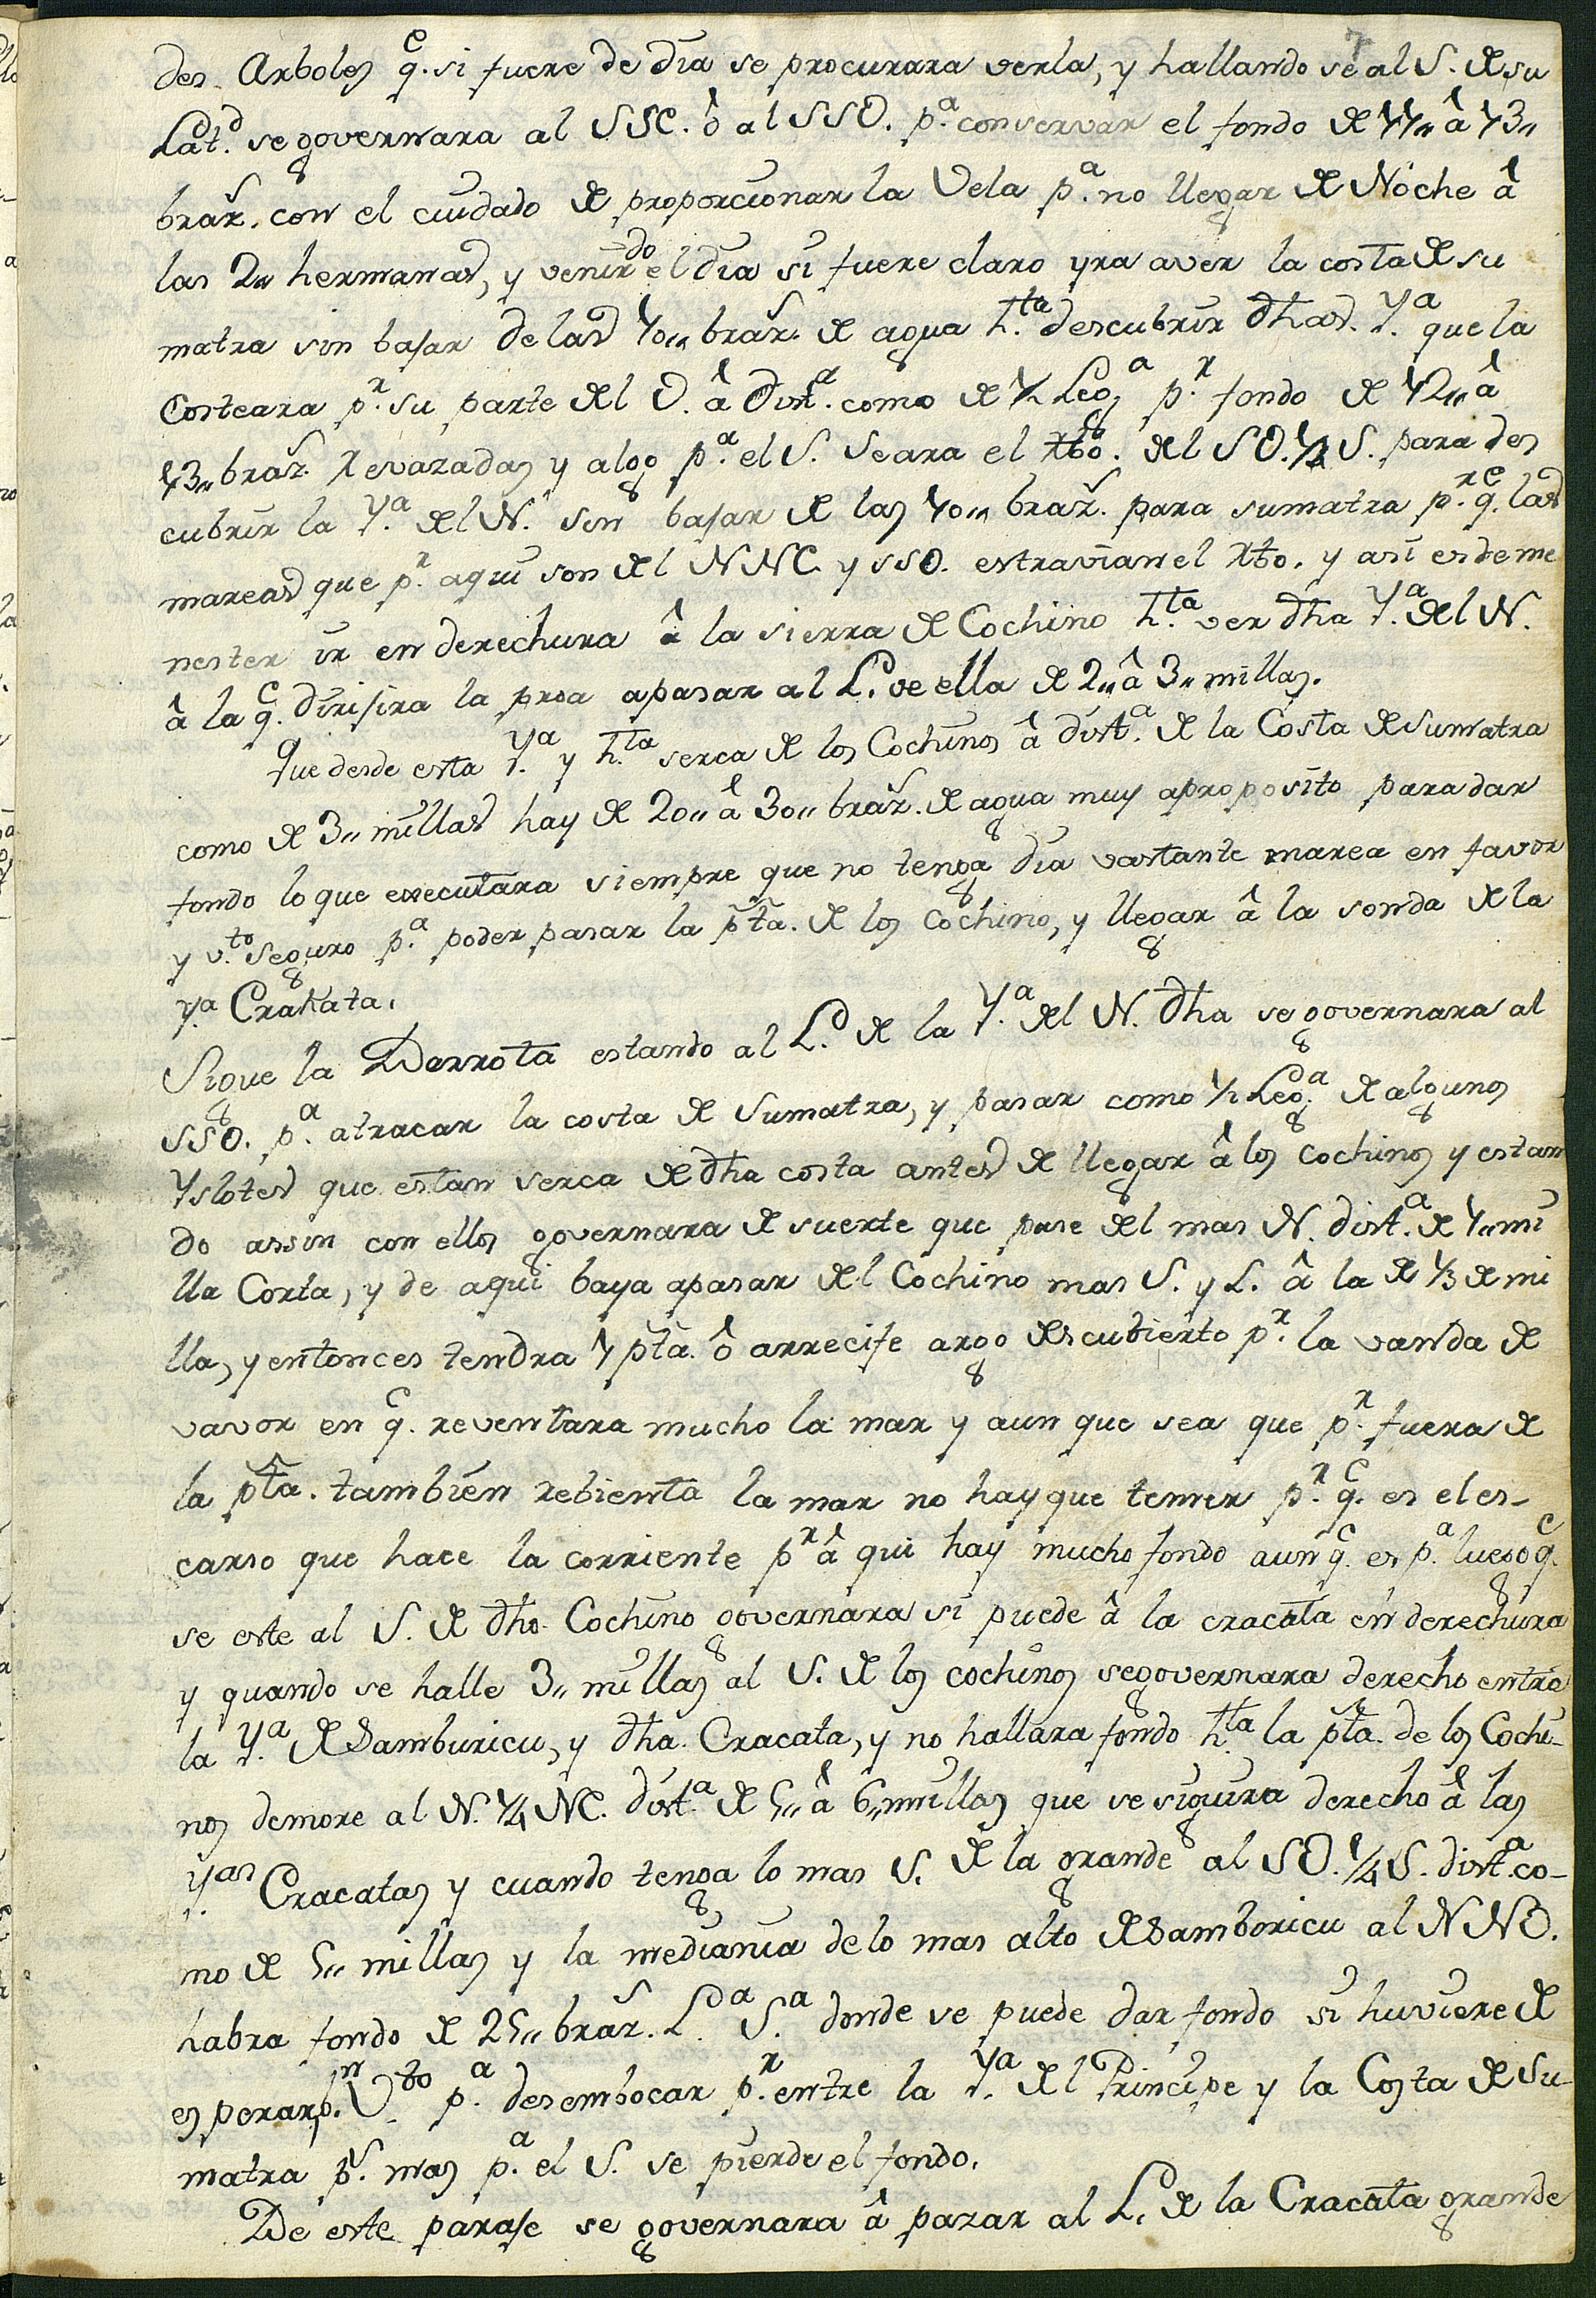 des Arboles q.e si fuere de dia se procurara verla, y hallandose al S. de su
Lat.d se governara al SSE. ô al SSO. p.a conservar el fondo de 11,, â 13,,
braz.s con el cuidado de proporcionar la Vela p.a no llegar de Noche â
las 2,, hermanas, y venido el dia si fuere claro yra aver la costa de su
matra sin bajar de las 10,, braz.s de agua h.ta descubrir dhas. Y.a que la
Costeara p.r su parte del O. â dist.a como de ½ Leg.a p.r fondo de 12,, â
13,, braz.s revazadas y algo p.a el S. seara el Rbo. del SO.¼ S. para des
cubrir la Y.a del N. sin bajar de las 10,, braz.s para sumatra p.r q.e las
mareas que p.r aqui son del NNE y SSO. estravian el Rbo. y asi es de me
nester ir en derechura â la sierra de Cochino h.ta ver dha Y.a del N.
â la q.e dirijira la proa apasar al L. de ella de 2,, â 3,, millas.
Que desde esta Y.a y h.ta serca de los Cochinos â dist.a de la Costa de Sumatra
como de 3,, millas hay de 20,, â 30,, braz.s de agua muy aproposito para dar
fondo lo que executara siempre que no tenga dia vastante marea en favor
y v.to seguro p.a poder pasar la pta. de los Cochino, y llegar â la sonda de la
Y.a Crakata.
Sigue la Derrota estando al L. de la Y.a del N. dha se governara al
SSO. p.a atracar la costa de Sumatra, y pasar como ½ Leg.a de algunos
Yslotes que estan serca de dha costa antes de llegar â los Cochinos y estan
do assin con ellos governara de suerte que pase del mas N. dist.a de 1,, mi
lla Corta, y de aqui baya apasar del Cochino mas S. y L. â la de ⅓ de mi
lla, y entonces tendra 1 pta. ô arrecife argo descubierto p.r la vanda de
vavor en q.e reventara mucho la mar y aun que sea que p.r fuera de
la pta. tambien rebienta la mar no hay que temer p.r q.e es el es-
carso que hace la corriente p.r âqui hay mucho fondo aunq.e es p.a luego q.e
se este al S. de dho. Cochino governara si puede â la cracata en derechura
y quando se halle 3,, millas al S. de los cochinos segovernara derecho entre
la Y.a de Samburicu, y dha. Cracata, y no hallara fondo h.ta la pta. de los Cochi-
nos demore al N. ¼ NE. dist.a de 5,, â 6,, millas que se siguira derecho â las
Y.as Cracatas y cuando tenga lo mas S. de la grande al SO. ¼ S. dist.a co-
mo de 5,, millas y la mediania de lo mas alto de Samboricu al NNO.
habra fondo de 25,, braz.s L.a S.a donde se puede dar fondo si huviere de
esperar b.n V.to p.a desembocar p.r entre la Y.a del Principe y la Costa de Su-
matra p.s mas p.a el S. se pierde el fondo.
De este paraje se governara â pazar al L. de la Cracata grande